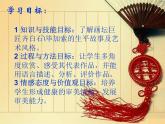 学习目标：
1 知识与技能目标：了解画坛巨
匠齐白石\毕加索的生平故事及艺
术风格。
2 过程与方法目标：让学生多角
度欣赏、感受代表作品，并能
用描述、分析、评价作品。
3 情感态度与价值观目标：培养
学生形成健康的审美情趣，发展
审美能力。